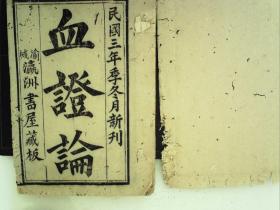 民國三年季冬月新刊
血證論
渝城瀛洲書屋藏板